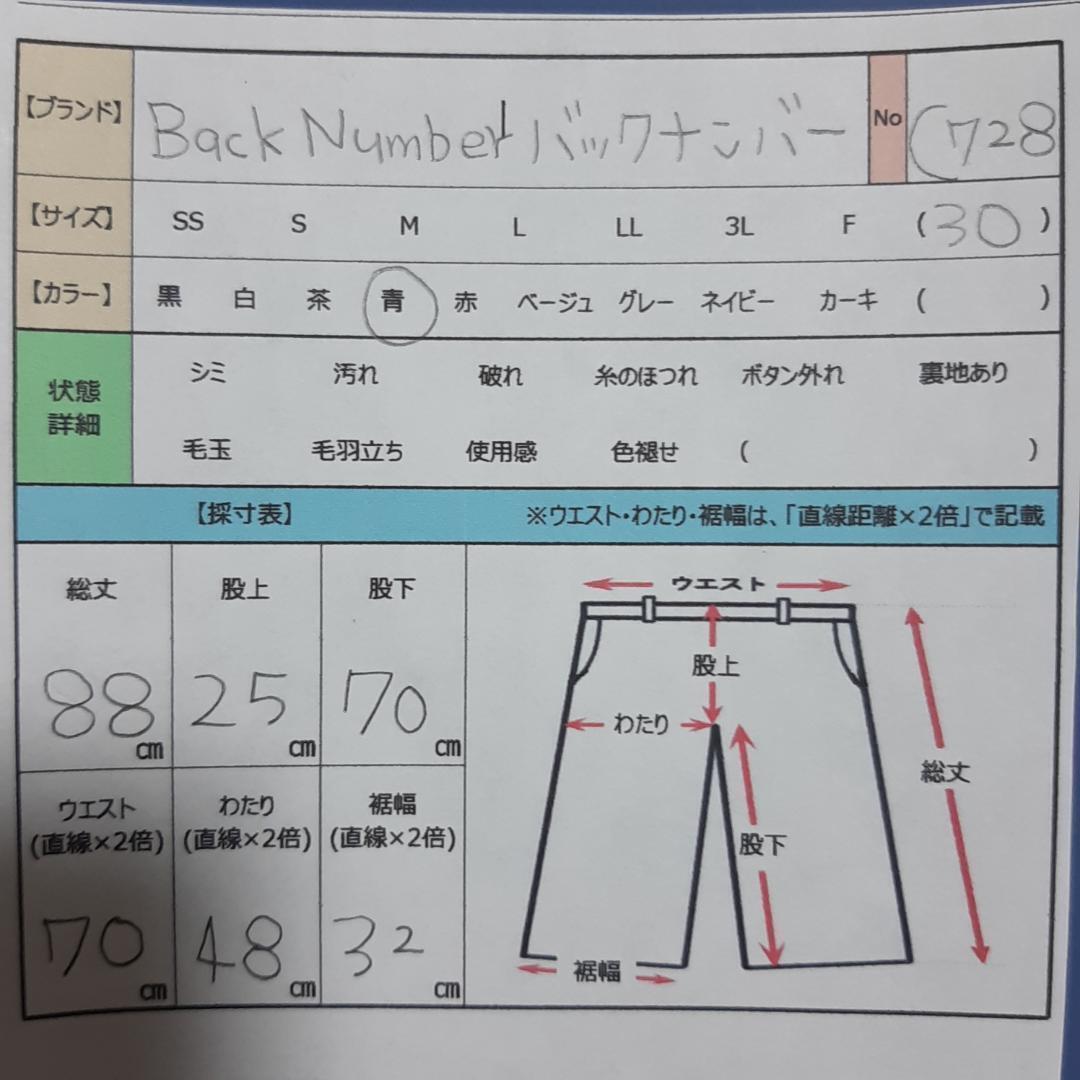 【ブランド】 Back Number バックナンバー No (728
【サイズ】 SS S M L LL 3L F (30)
【カラー】 黒 白 茶 青 赤 ベージュ グレー ネイビー カーキ ( )
状態
詳細
シミ 汚れ 破れ 糸のほつれ ボタン外れ 裏地あり
毛玉 毛羽立ち 使用感 色褪せ ( )
【採寸表】 ※ウエスト・わたり・裾幅は、「直線距離×2倍」で記載
総丈 股上 股下
88cm 25cm 70cm
ウエスト わたり 裾幅
(直線×2倍) (直線×2倍) (直線×2倍)
70cm 48cm 32cm
ウエスト
股上
わたり
総丈
股下
裾幅